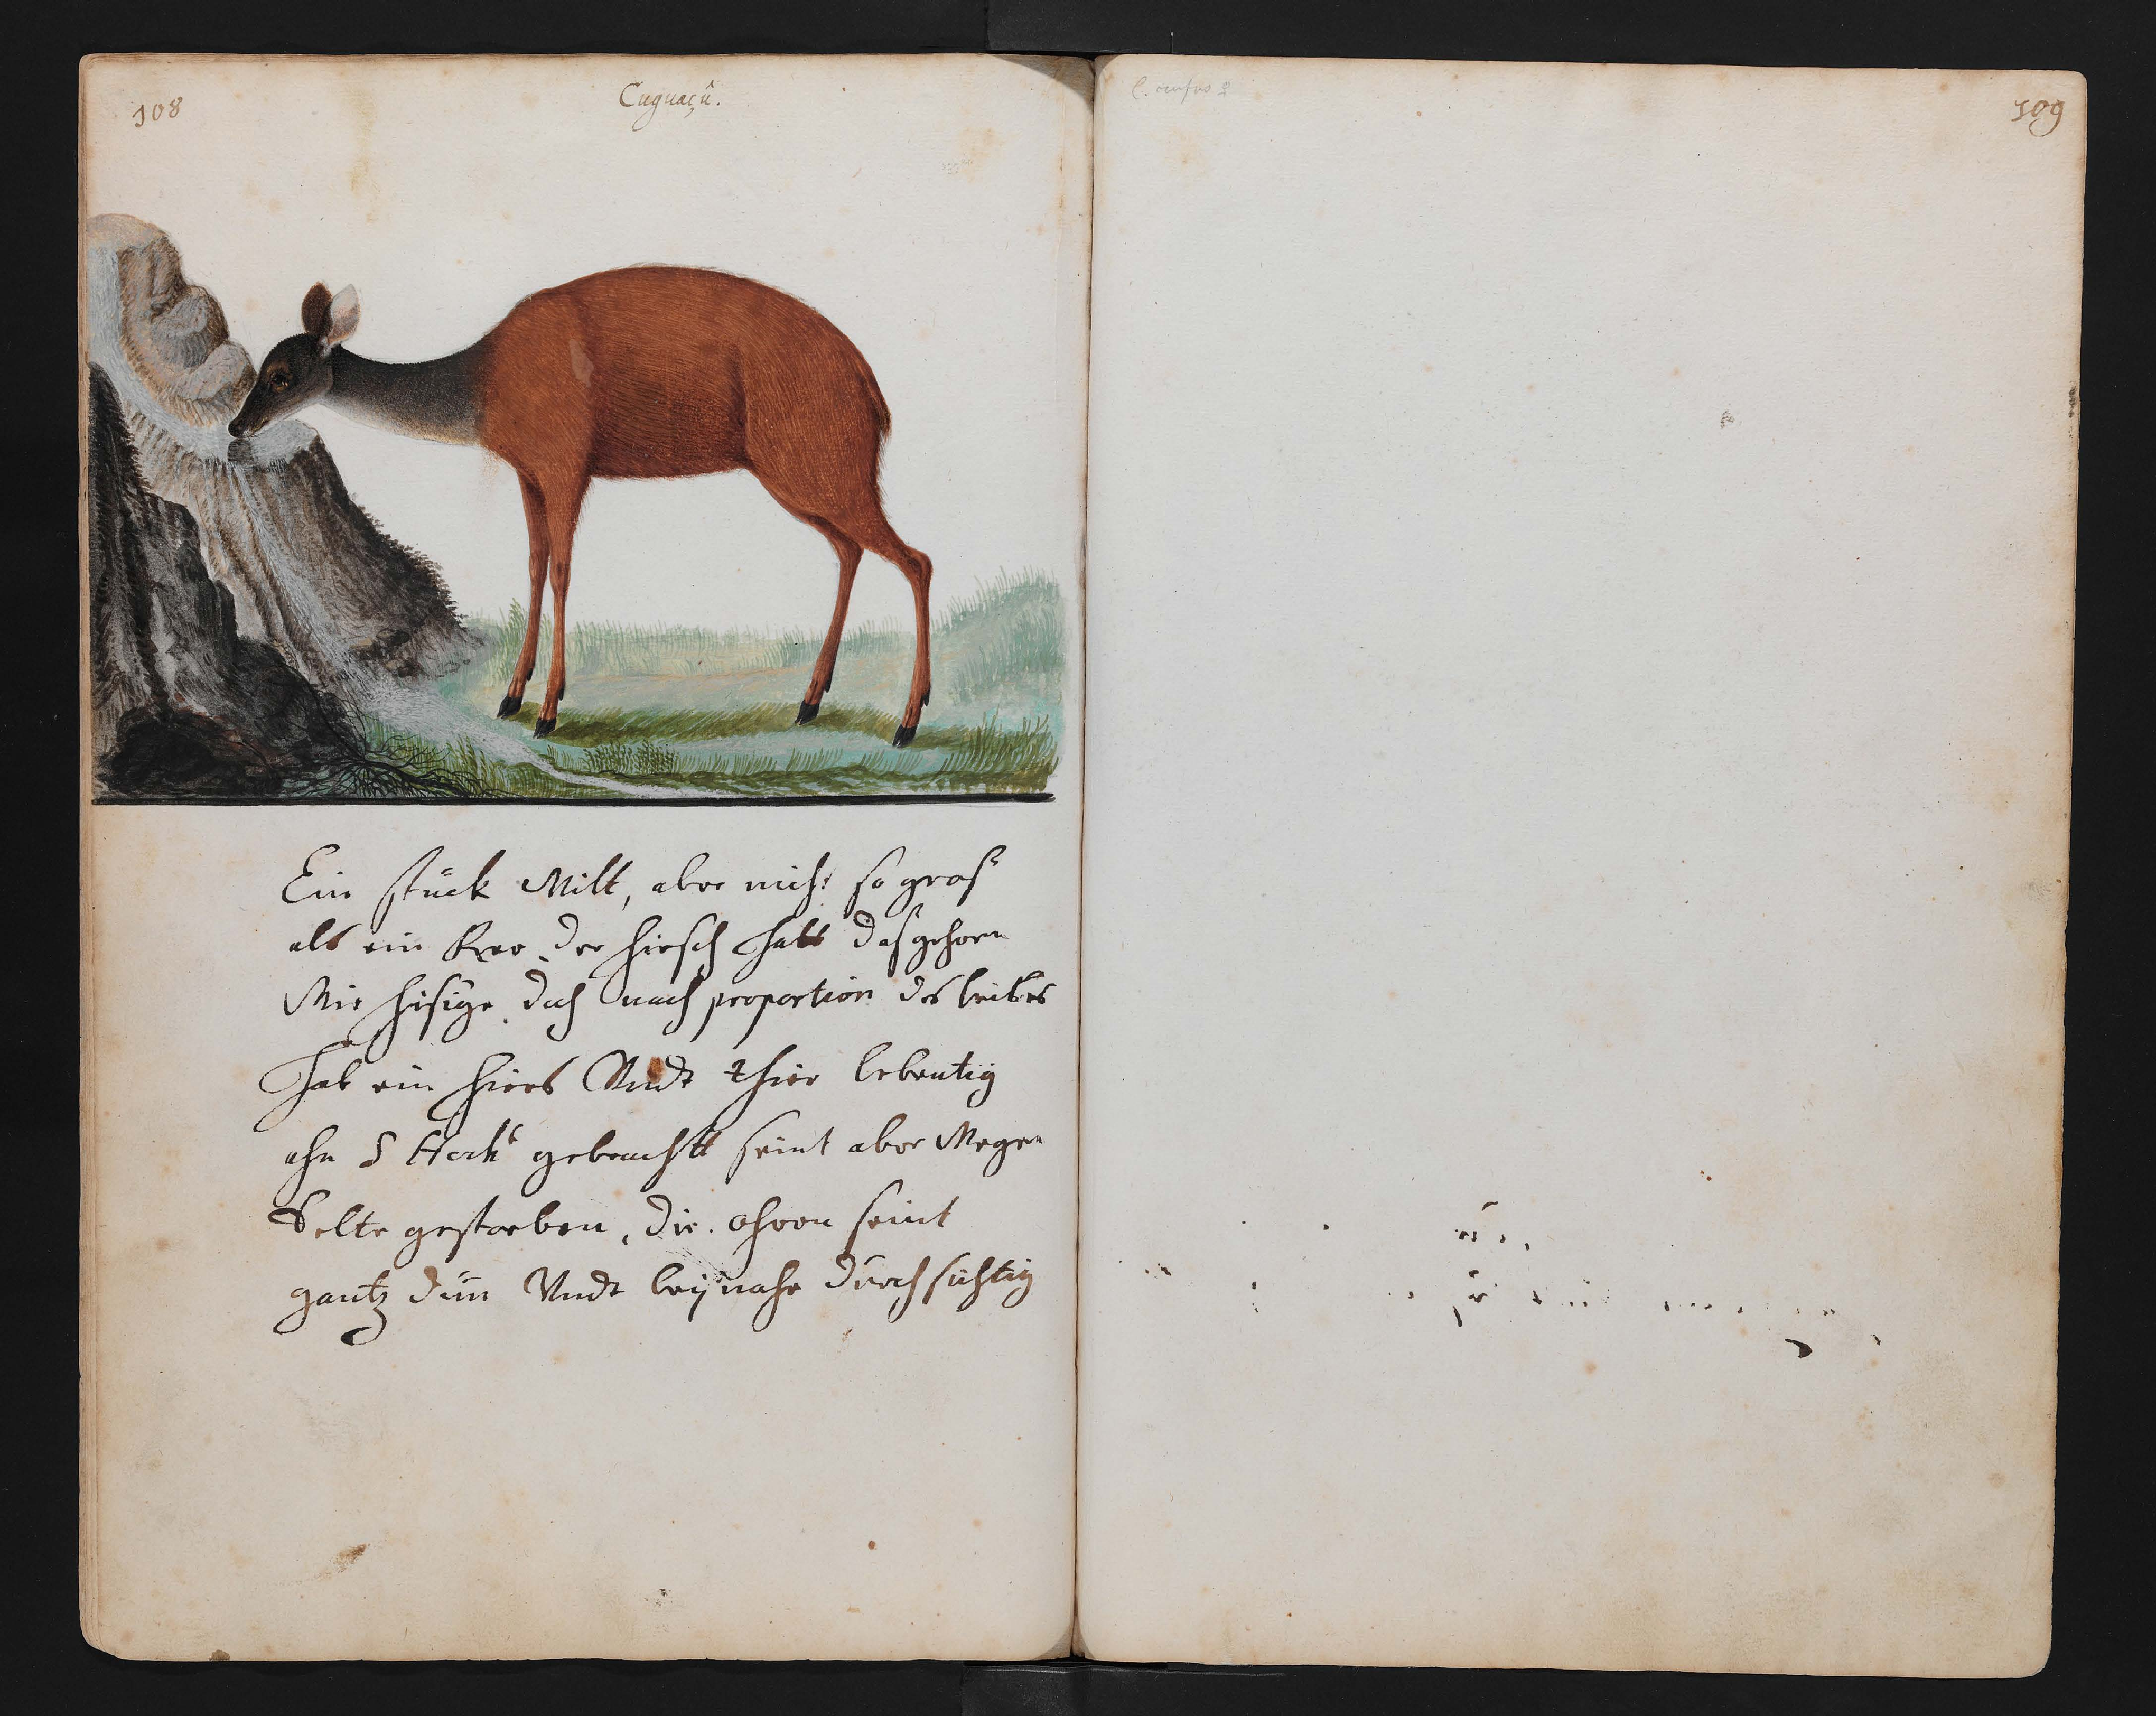 108
Cuguaçû.
Ein stück Wilt, aber nich: so gros
als ein Ree. der hirsch hatt das gehorn
Wie hisige. doch nach proportion des leibes
hab ein hiers Undt thier lebentig
ahn gebrachtt seint aber Wegen
Kelte gestorben, die. ohren seint
gantz dün Undt beÿnahe durchsichtig
109